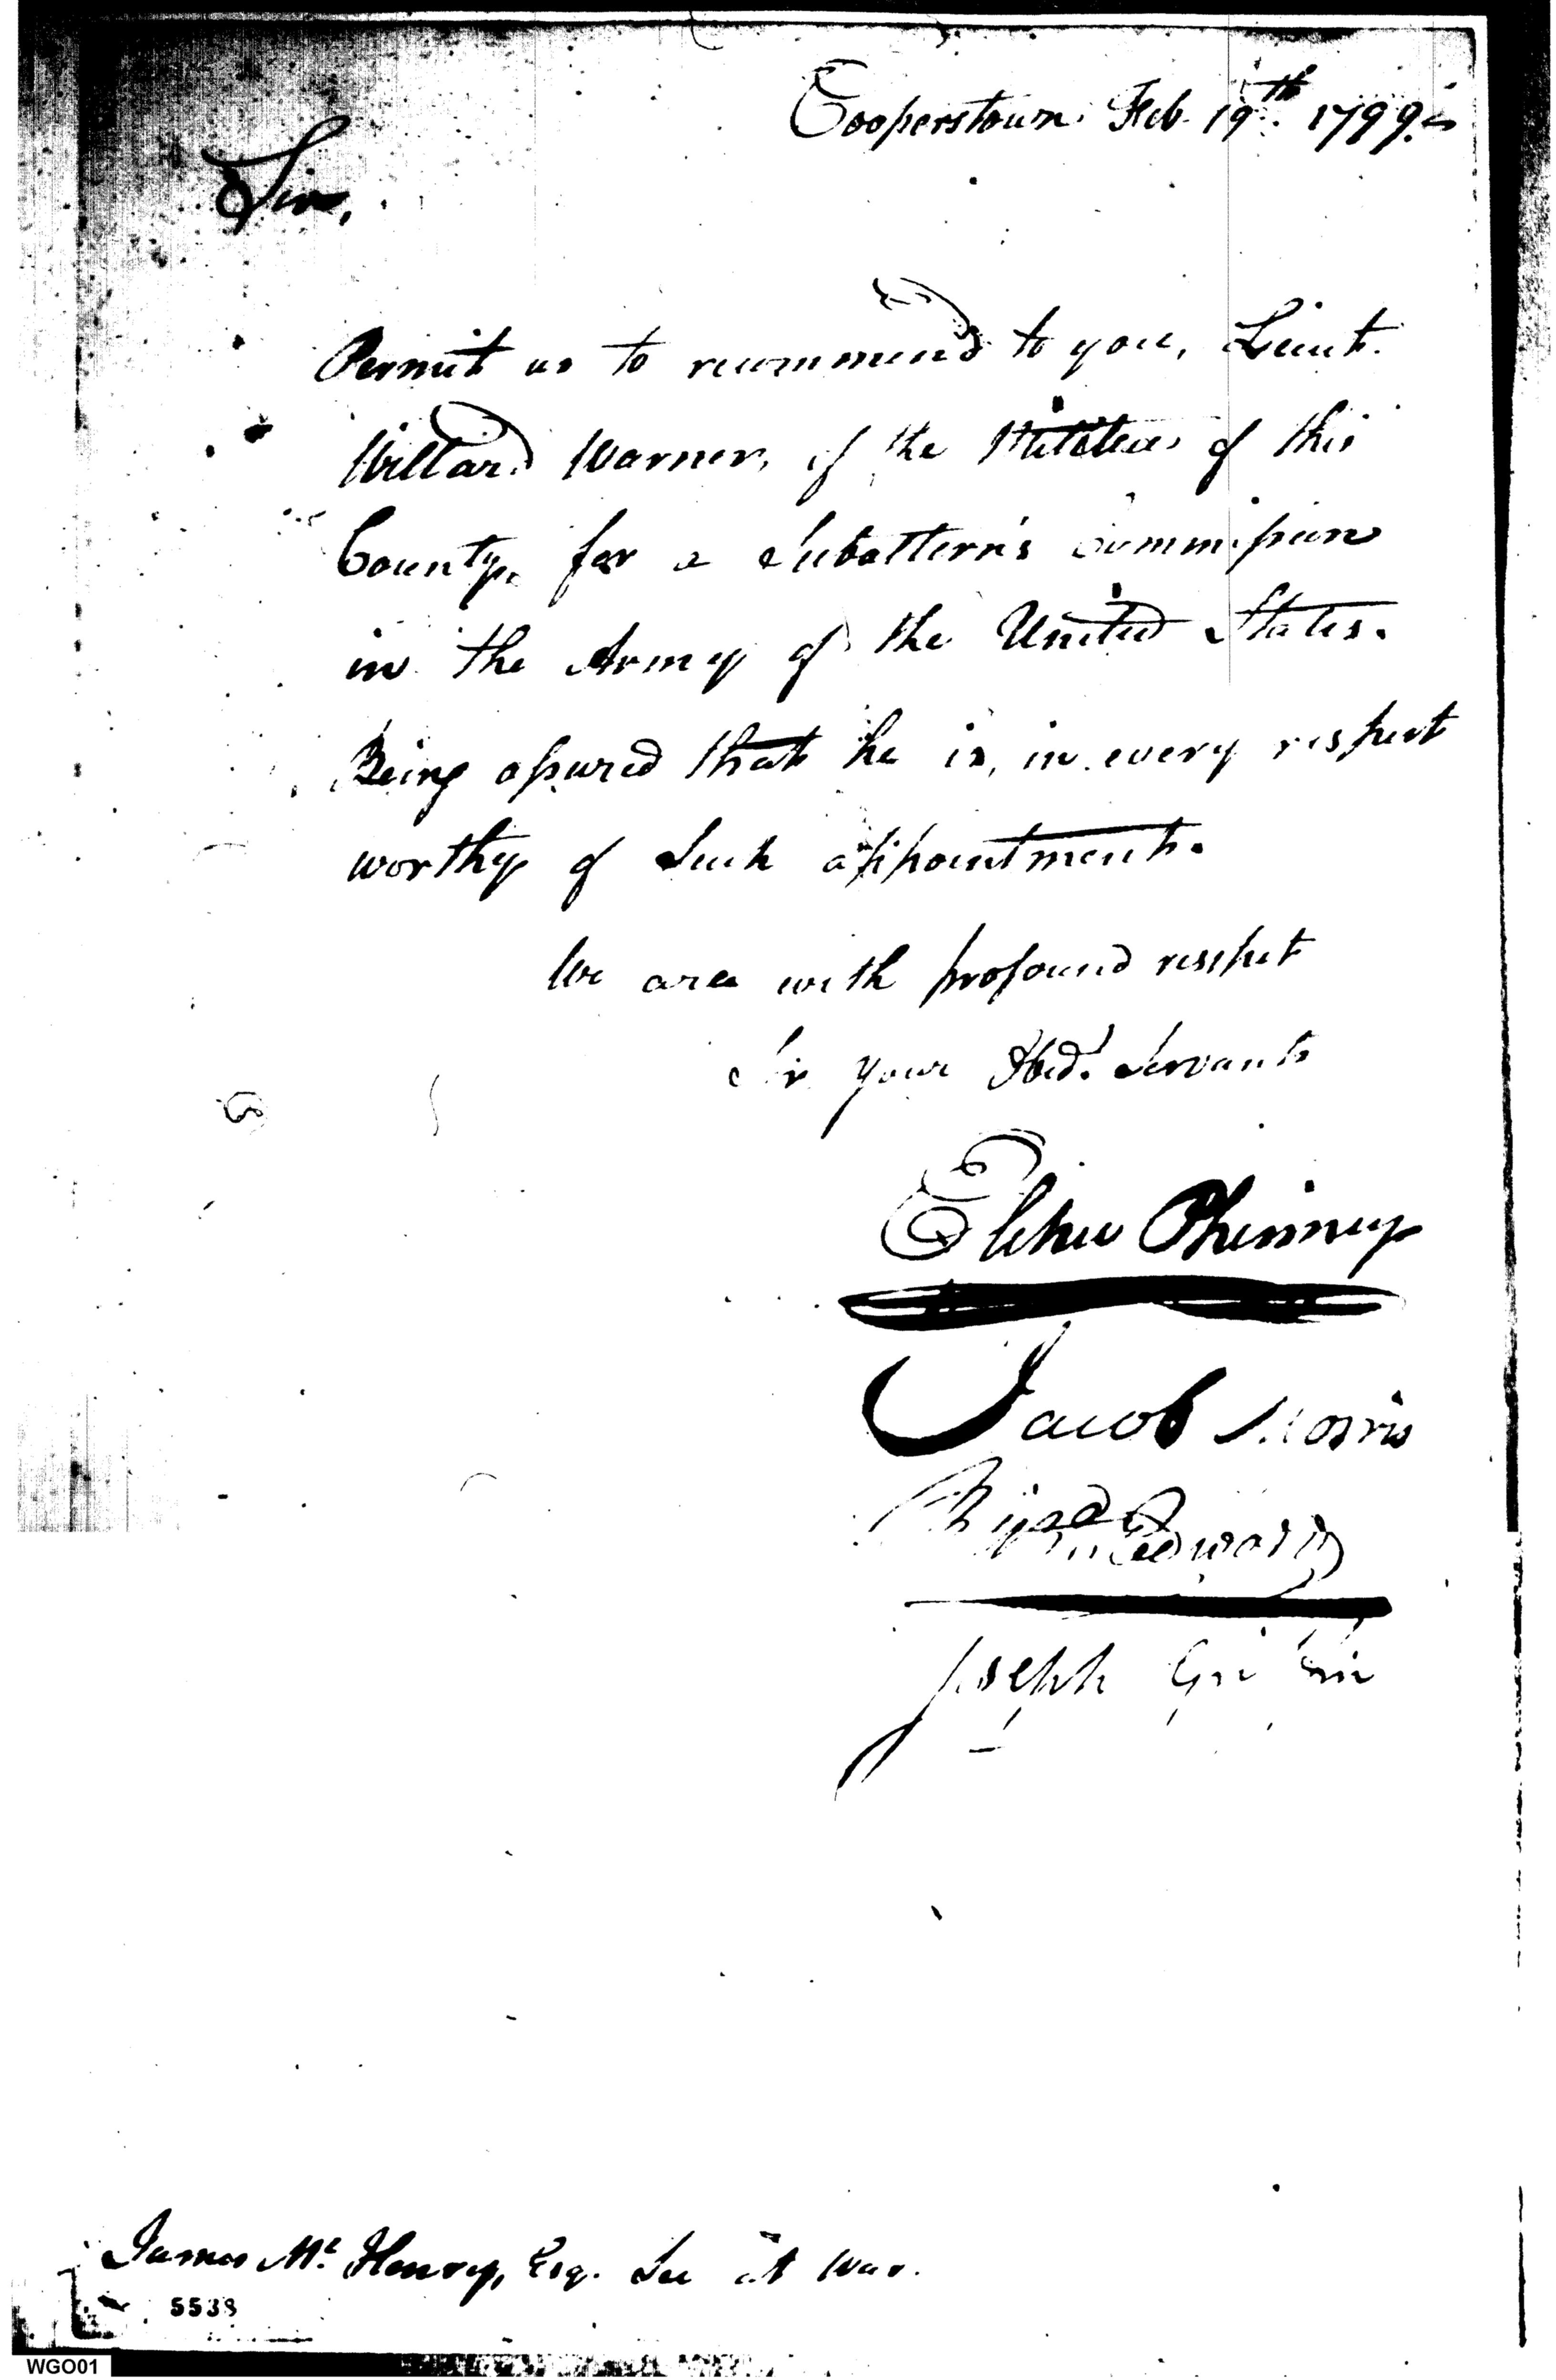 Cooperstown Feb. 19th 1799.
Sir,
Permit us to recommend to you, Lieut.
Willard Warner, of the Militia of this
County, for a Subaltern's Commission
in the Army of the United States.
Being assured that he is, in every respect
worthy of Such appointment.
We are with profound respect
Sir your Obed. Servants
Elihu Phinney
Jacob Morris
Edwards
Joseph Griffin
James Mc Henry, Esq. Sec at War.
5538
WGO01